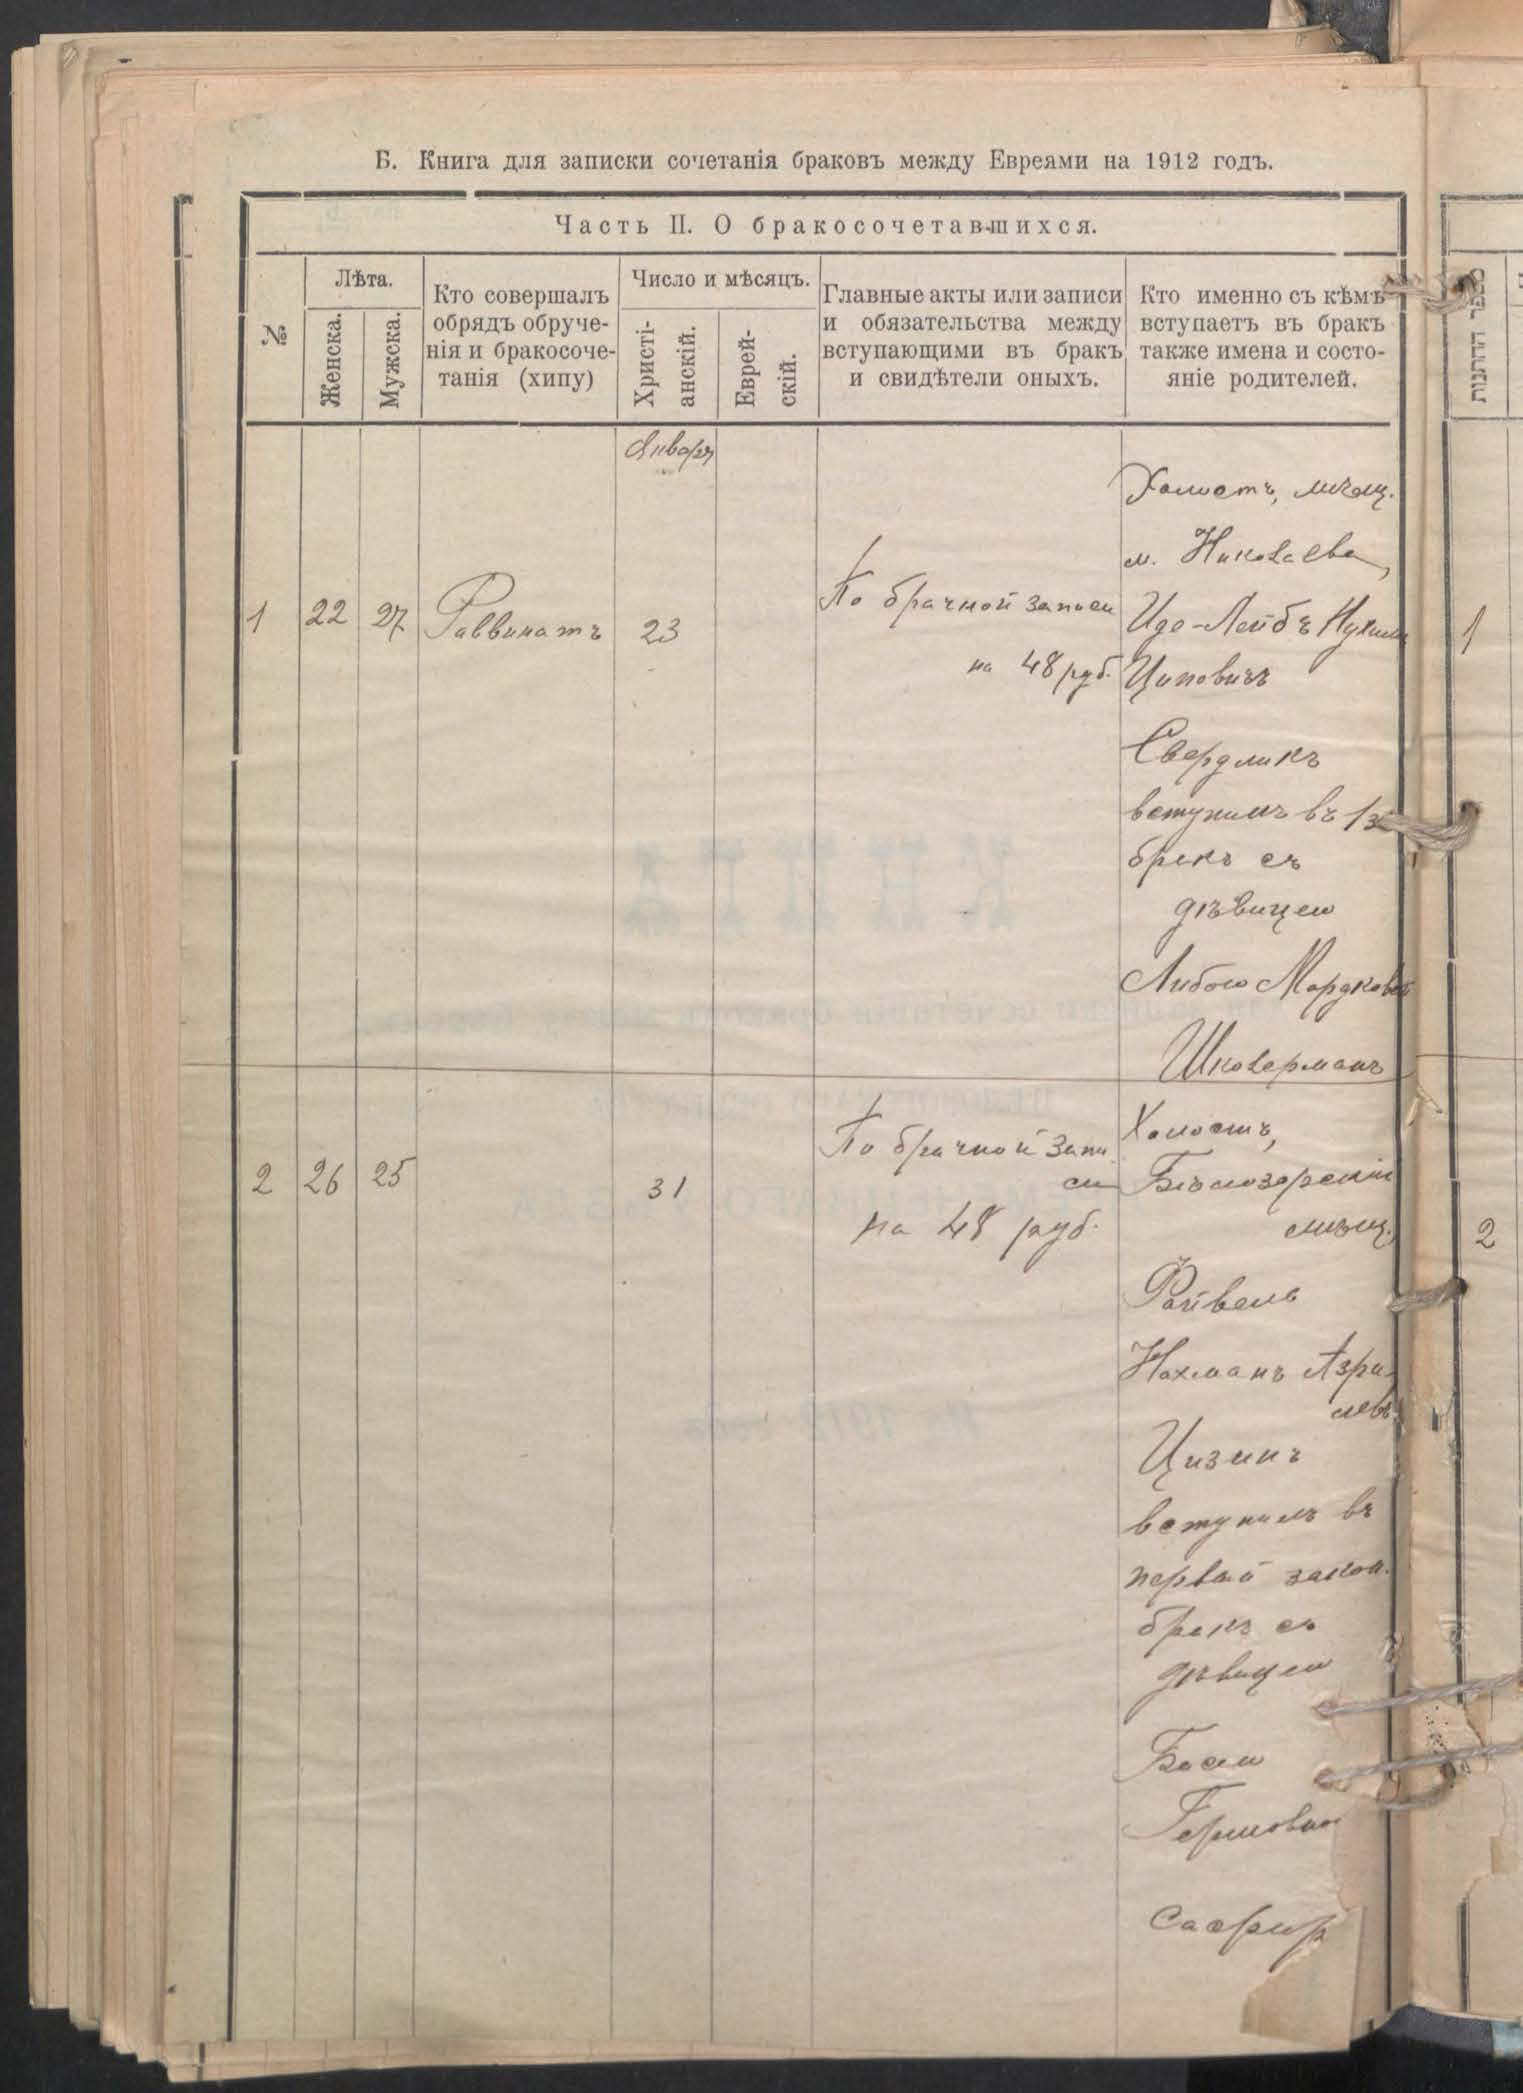 Б. Книга для записки сочетанія браковъ между Евреями на 1912 годъ.
Часть II. О бракосочетавшихся.
№
Лѣта.
Женска.
Мужска.
Кто совершалъ
обрядъ обруче-
нія и бракосоче-
танія (хипу)
Число и мѣсяцъ.
Христі-
анскій.
Еврей-
скій.
Главные акты или записи
и обязательства между
вступающими въ бракъ
и свидѣтели оныхъ.
Кто именно съ кѣмъ
вступаетъ въ бракъ
также имена и состо-
яніе родителей.
Январь
1
22
27
Раввинатъ
23
По брачной записи
на 48 руб.
Холостъ, мѣщ.
м. Николаева,
Иде-Лейбъ Нухим
Циповичъ
Свердликъ
вступилъ въ 1 з
бракъ съ
дѣвицею
Либою Мордков
Школерманъ
2
26
25
31
По брачной запи
си
на 48 руб.
Холостъ,
Бѣлозерскій
мѣщ.
Файвель
Нахманъ Азри-
левъ
Цизинъ
вступилъ въ
первый закон.
бракъ съ
дѣвицею
Басею
Гершовно
Сафир
1
2